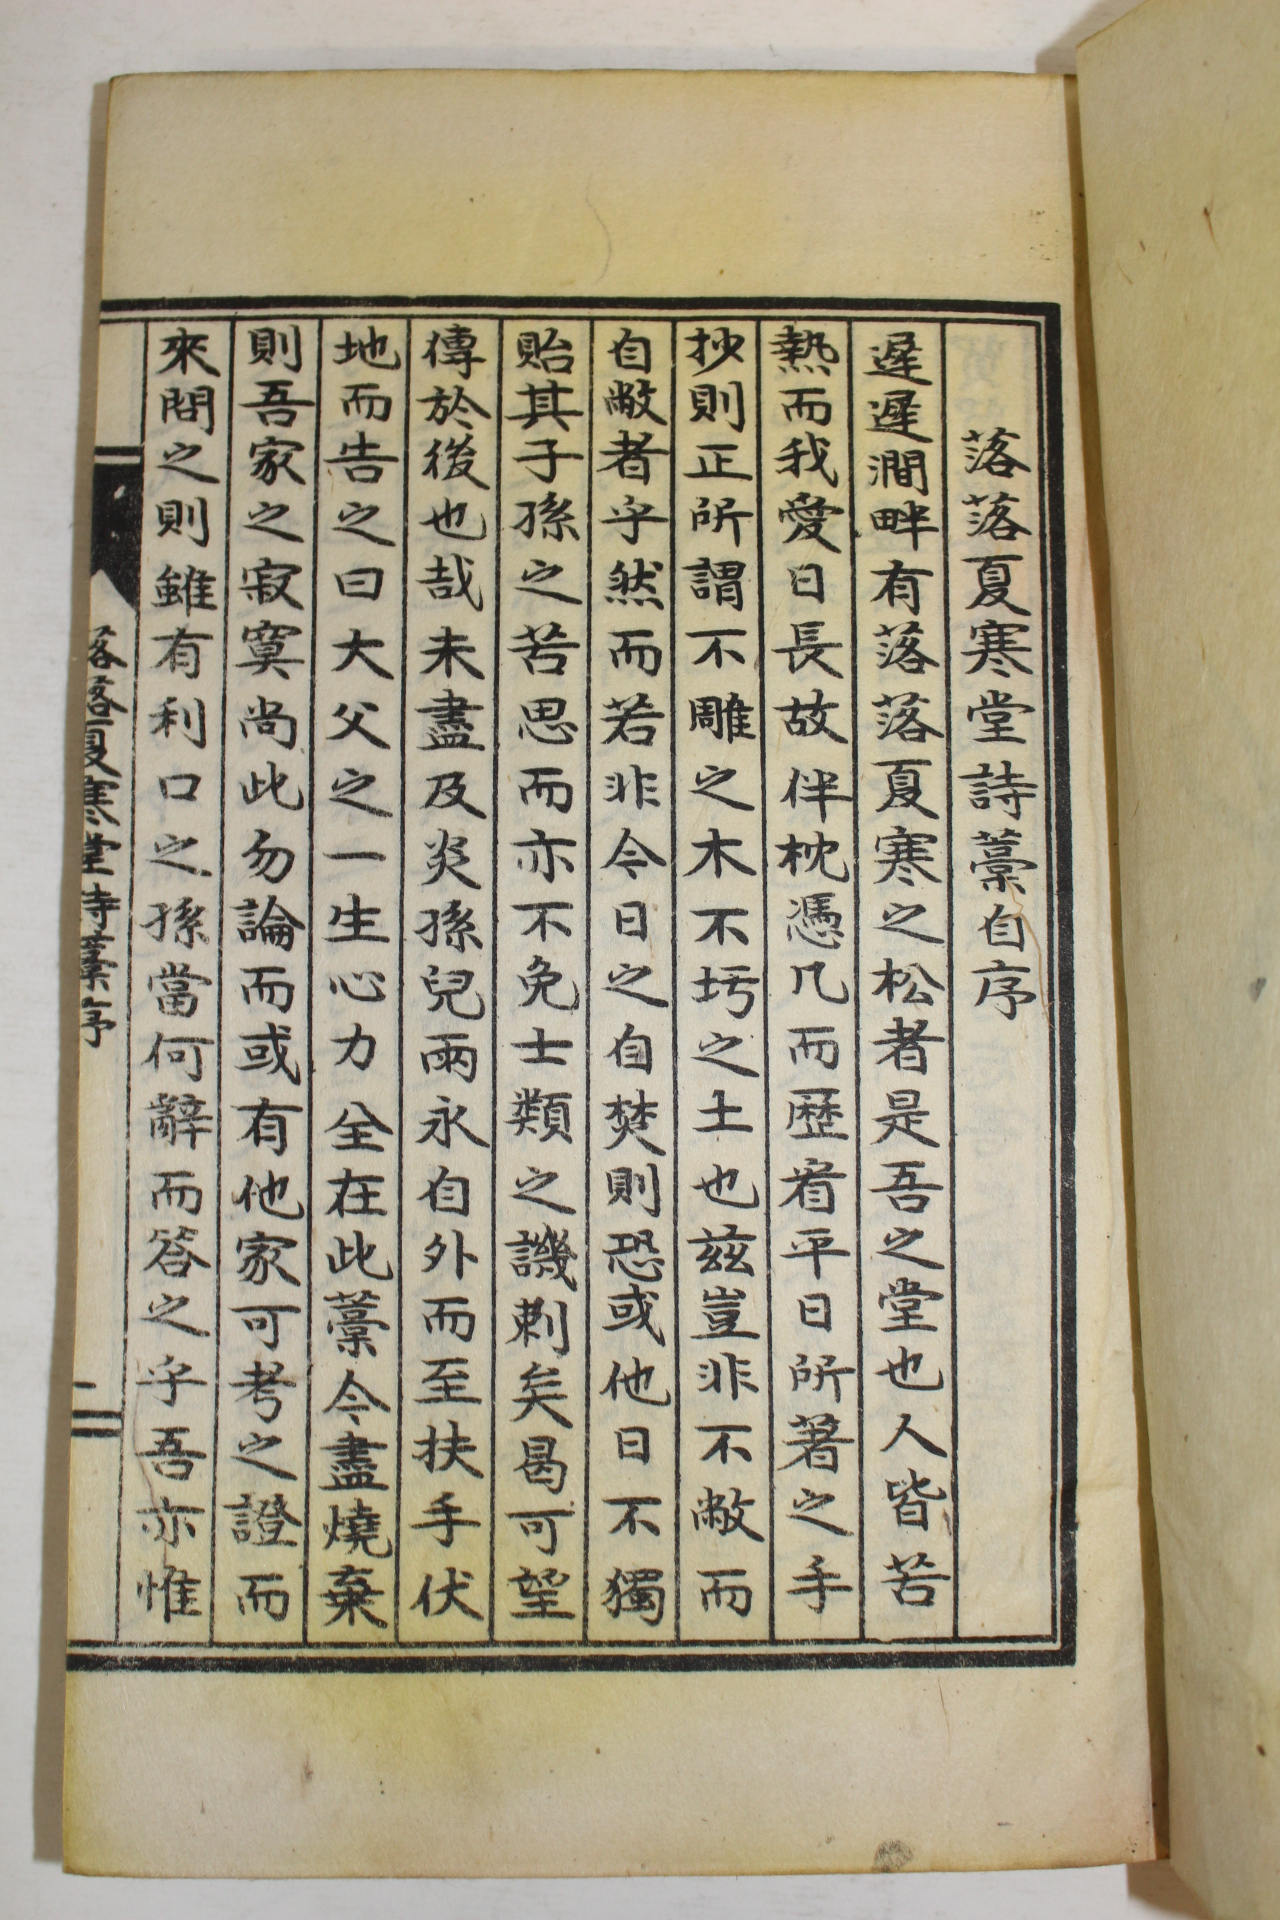 落落夏寒堂詩藁自序
遲遲澗畔有落落夏寒之松者是吾之堂也人皆苦
熱而我愛日長故伴枕憑几而歷看平日所著之手
抄則正所謂不雕之木不圬之土也茲豈非不敝而
自敝者乎然而若非今日之自焚則恐或他日不獨
貽其子孫之苦思而亦不免士類之譏刺矣曷可望
傳於後也哉未盡及炎孫兒兩永自外而至扶手伏
地而告之曰大父之一生心力全在此藁今盡燒棄
則吾家之寂寞尚此勿論而或有他家可考之證而
來問之則雖有利口之孫當何辭而答之乎吾亦惟
落落夏寒堂詩藁序